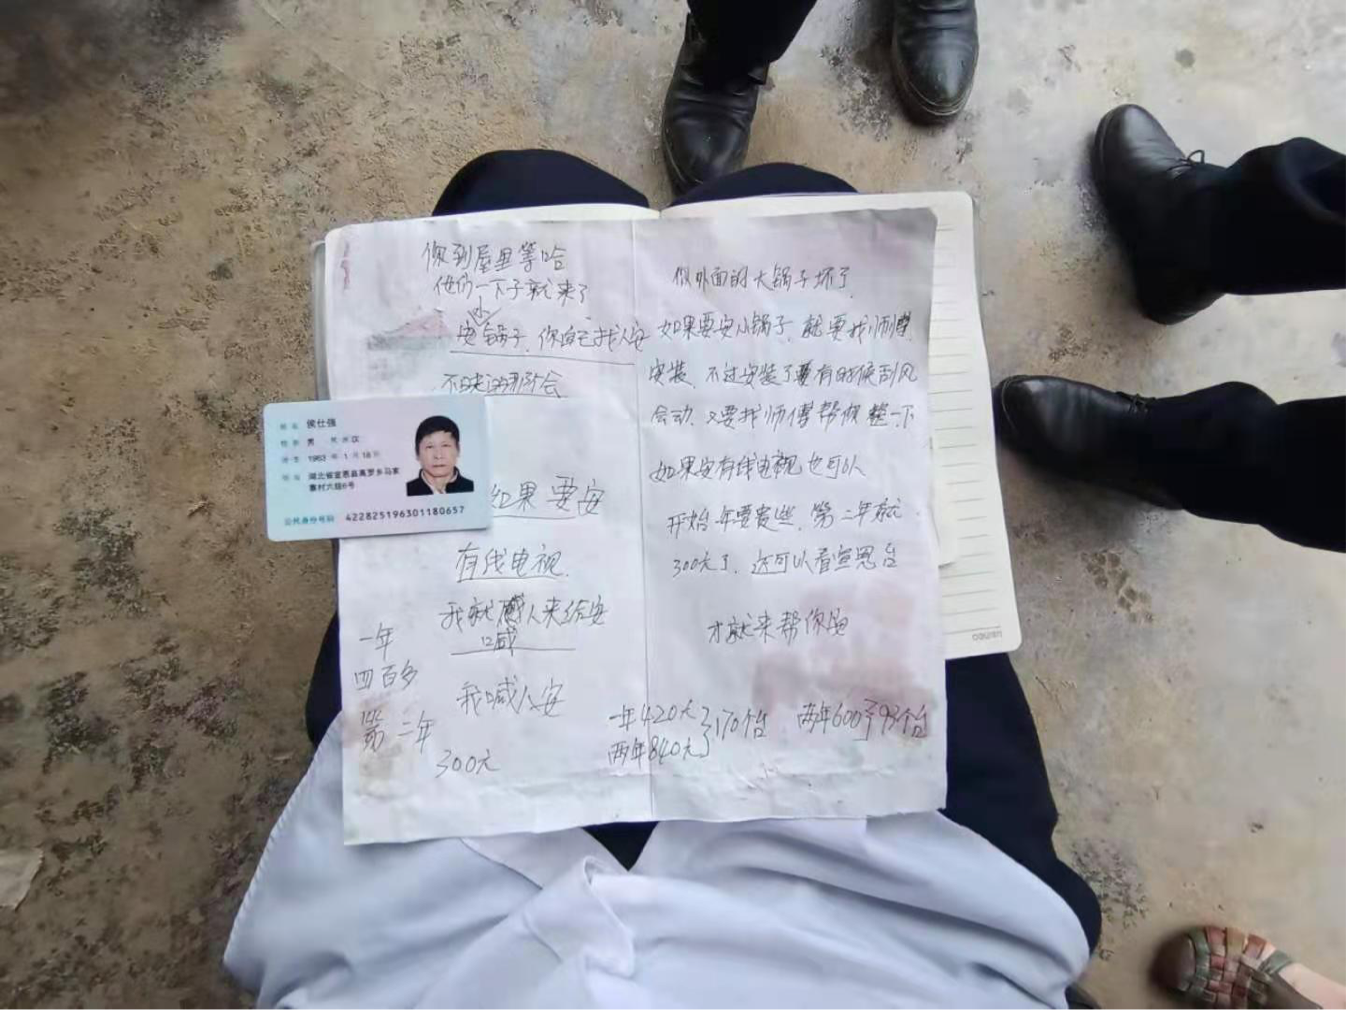 你到屋里等哈
他们一下子就来了
小
安锅子,你自己找人安
如果要安
有线电视.
我就喊人来给安
喊
我喊人安
一年
四百多
第二年
300元
你外面的大锅子坏了.
如果要安小锅子,就要找师傅
安装,不过安装了要有时候刮风
会动.又要找师傅帮你整一下
如果安有线电视也可以
开始一年要贵些,第二年就
300元了,还可以看宣恩台
才就来帮你安
一年420元
两年840元
170个台
两年600元93个台
侯仕强
男
汉
1963年1月18日
湖北省宣恩县高罗乡马家
寨村六组6号
公民身份号码 422825196301180657